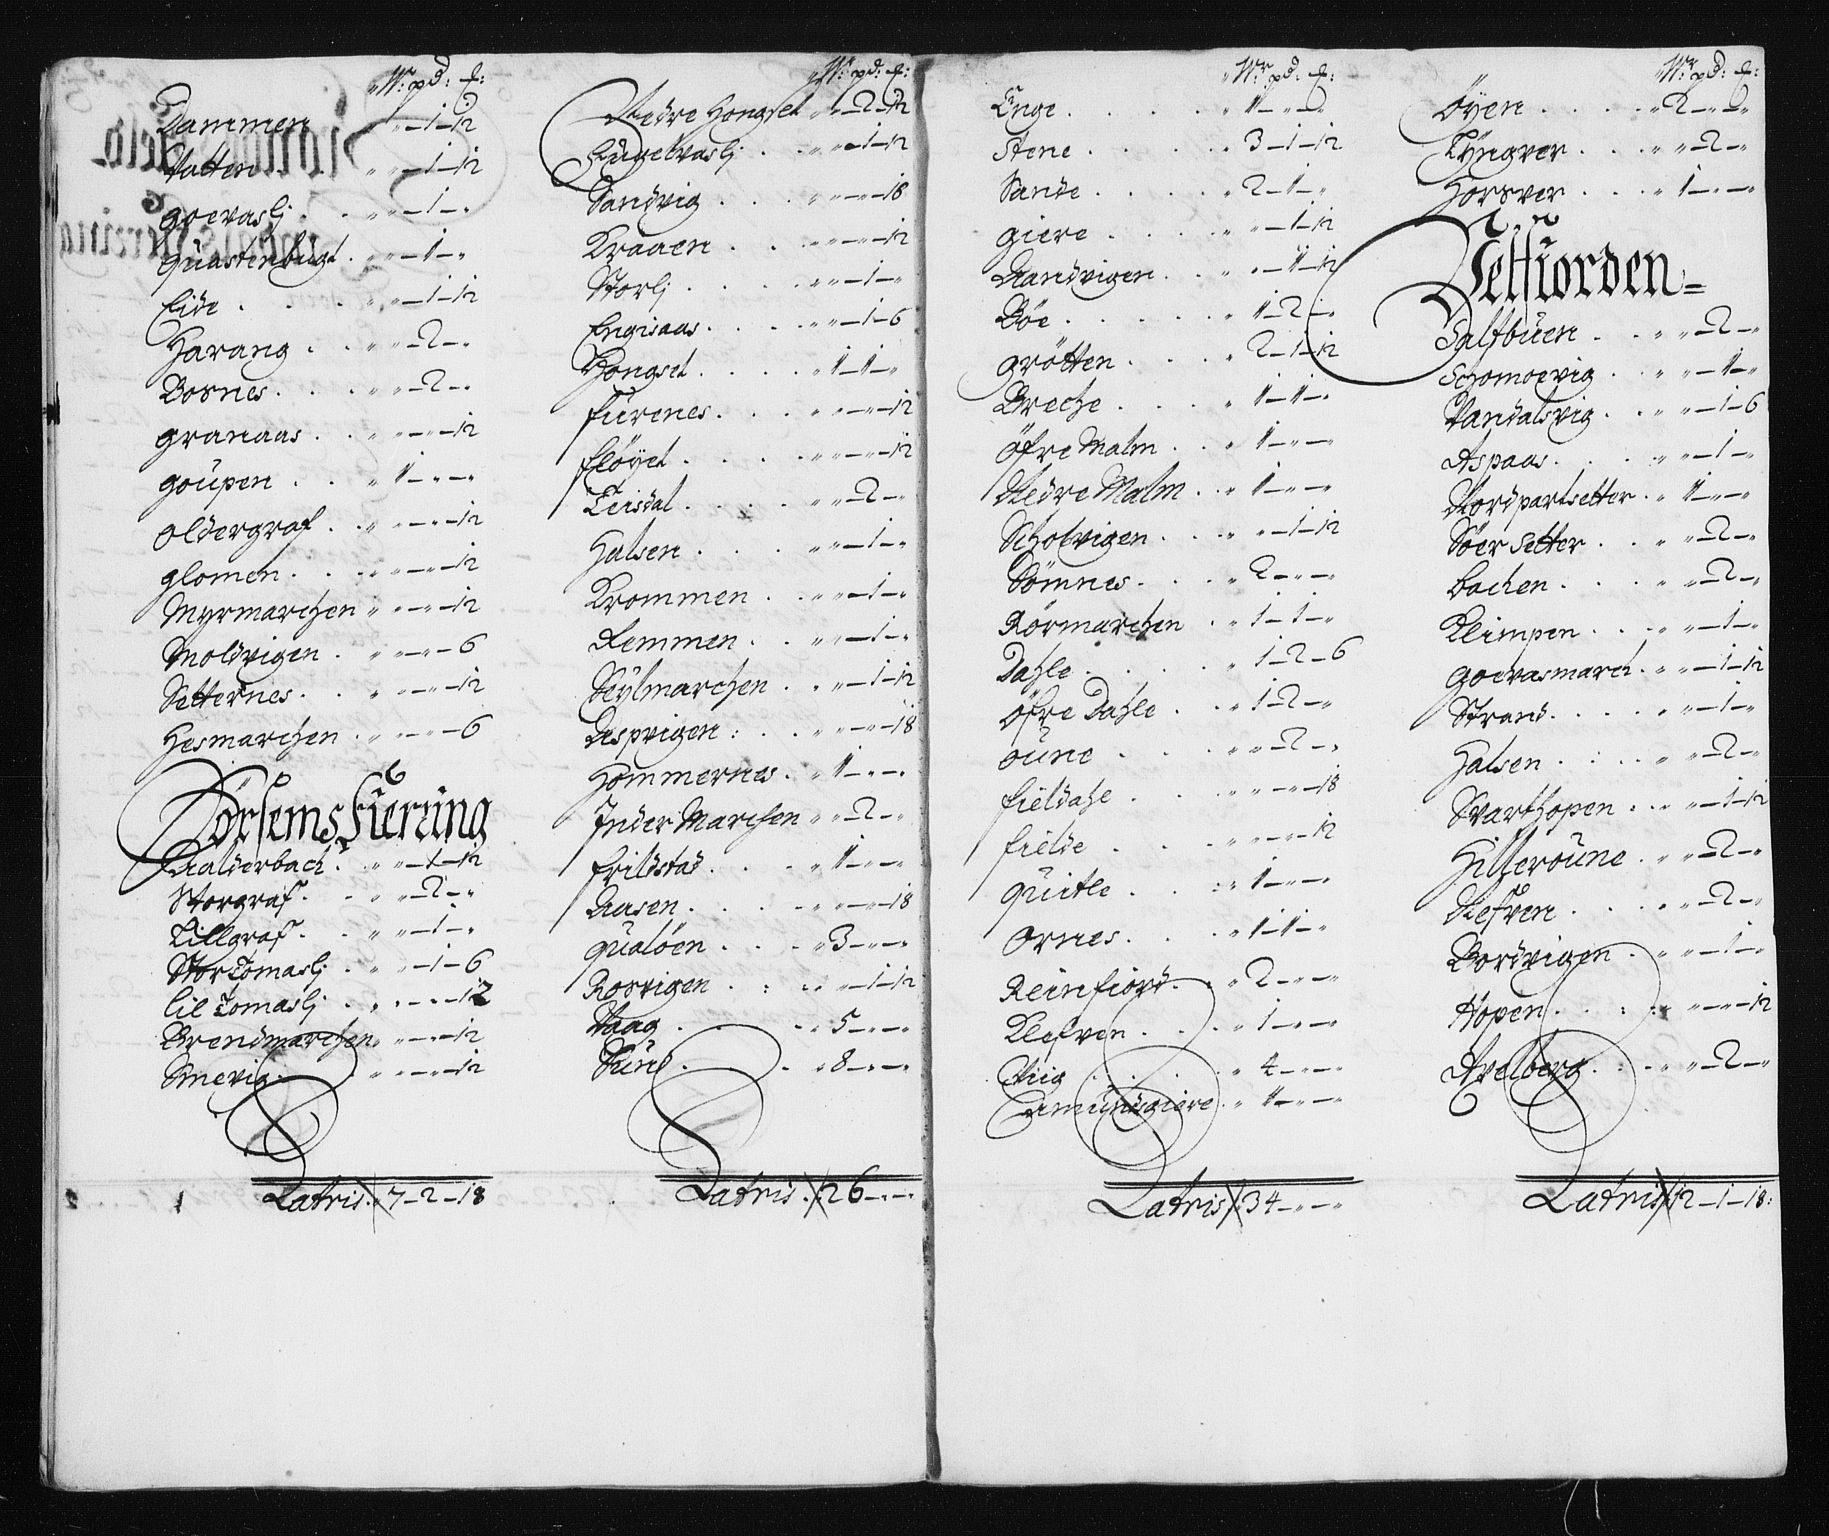 W: pd: £:
Dammen „-1-12
Vatten . „ „-1-12
goevaslj . „ „-1-„
quastenbugt . „ „-1-„
Eide . . „ „-1-12
Harang . . „ „-2-„
Bosnes . . „ „-2-„
granaas . . „ „-„-12
goupen . . „ 1-„-„
oldergraf . „ „-„-12
glomen . . „ „-„-12
Myrmarchen „ „-„-12
Moldvigen . „ „-„-6
Setternes . „ „-„-12
Hesmarchen . „ „-„-6
Børsems Fierring
Kalderbach . „ „-1-12
Storgraf . „ „-2-„
Lillgraf . „ „-1-„
Stor Tomaslj . „ „-1-6
lil Tomaslj . „ „-„-12
Brendmarchen „ „-„-12
Smevig . „ „-„-12
Latris . 7-2-18
W: pd: £:
Nedre Hongset „ „-2-12
Kugelvaslj . „ „-1-12
Sandvig . . . „ „-„-18
Kraaen . . „ „-„-12
Storlj . . . „ „-1-„
Engisaas . . „ „-1-6
Hongset . . . „ 1-1-„
furenes . . „ „-„-12
fløyet . . . „ „-„-12
Leisdal . . . „ „-2-„
Halsen . . . „ „-1-„
Krommen . . „ „-1-„
Remmen . . „ „-1-„
Seylmarchen . „ „-1-12
Aspvigen : . „ „-„-18
Hommernes . „ 1-„-„
Inder Marchen „ „-2-„
frildstad . . „ 1-„-„
Aasen . . . „ „-„-18
qualøen . . „ 3-„-„
Rosvigen . : „ „-1-12
Vaag . . „ 5-„-„
Sund . . „ 8-„-„
Latris . 26-„-„
W: pd: £:
Enge . . . . „ 1-„-„
Stene . . . „ 3-1-12
Sande . . . „ 2-1-„
giere . . . „ „-1-12
Aandvigen . . „ „-1-12
Bøe . . . . „ 1-2-„
grøtten . . . „ 2-1-12
Breche . . . „ 1-1-„
øfre Malm . . „ 1-„-„
Nedre Malm . „ 1-„-„
Scholvigen . . „ „-1-12
Sømnes . . . „ 2-„-„
Rørmarchen . „ 1-1-„
Dahle . . . . „ 1-2-6
øfre Dahle . „ 1-2-„
oune . . . „ „-2-„
fieldahl . . „ „-„-18
fielde . . . „ „-„-12
quitle . . . „ 1-„-„
Ornes . . . „ 1-1-„
Reinfiord . „ 2-„-„
Klefven . . . „ 1-„-„
Viig . . . . „ 4-„-„
Amundsgiere . „ 1-„-„
Latris . 34-„-„
W: pd: £:
Øyen . . . „ 2-„-„
Lyngver . . . „ „-2-„
Horsver . . „ 1-„-„
Velfiorden
Salfbuen . . „ „-2-„
Schomoevig . „ „-1-„
Vandalsvig . „ „-1-6
Aspaas . . . „ „-1-„
Nordpartsetter . „ 1-„-„
Søer Setter . „ „-2-„
bachen . . . „ „-2-„
Klimpen . . „ „-1-„
goevasmarch . „ „-1-12
Strand . . . „ „-1-„
Halsen . : . „ „-2-„
Svarthopen . „ „-1-12
Hilleroune . „ „-2-„
Nefven . . . „ „-2-„
Bordvigen . „ „-1-„
Hopen . . : „ „-„-12
Avelberg . : „ „-2-„
Latris 12-1-18: